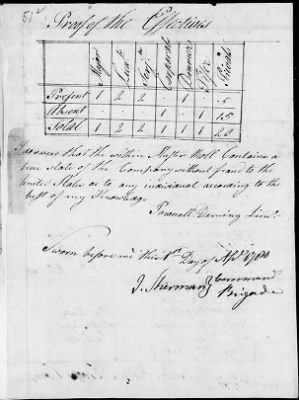 Proof of the Effectives
Major Lieuts Serjts Corporals Drummers Fifer Privates
Present 1 2 2 . 1 . 5
Absent . . . 1 . 1 15
Total 1 2 2 1 1 1 20
I do swear that the within Muster Roll Contains a
true State of the Company without fraud to the
United States or to any individual according to the
best of my Knowledge
Pownall Deming Lieut
Sworn before me this 1st Day of Apl 1780
J. Sherman } Command
Brigade